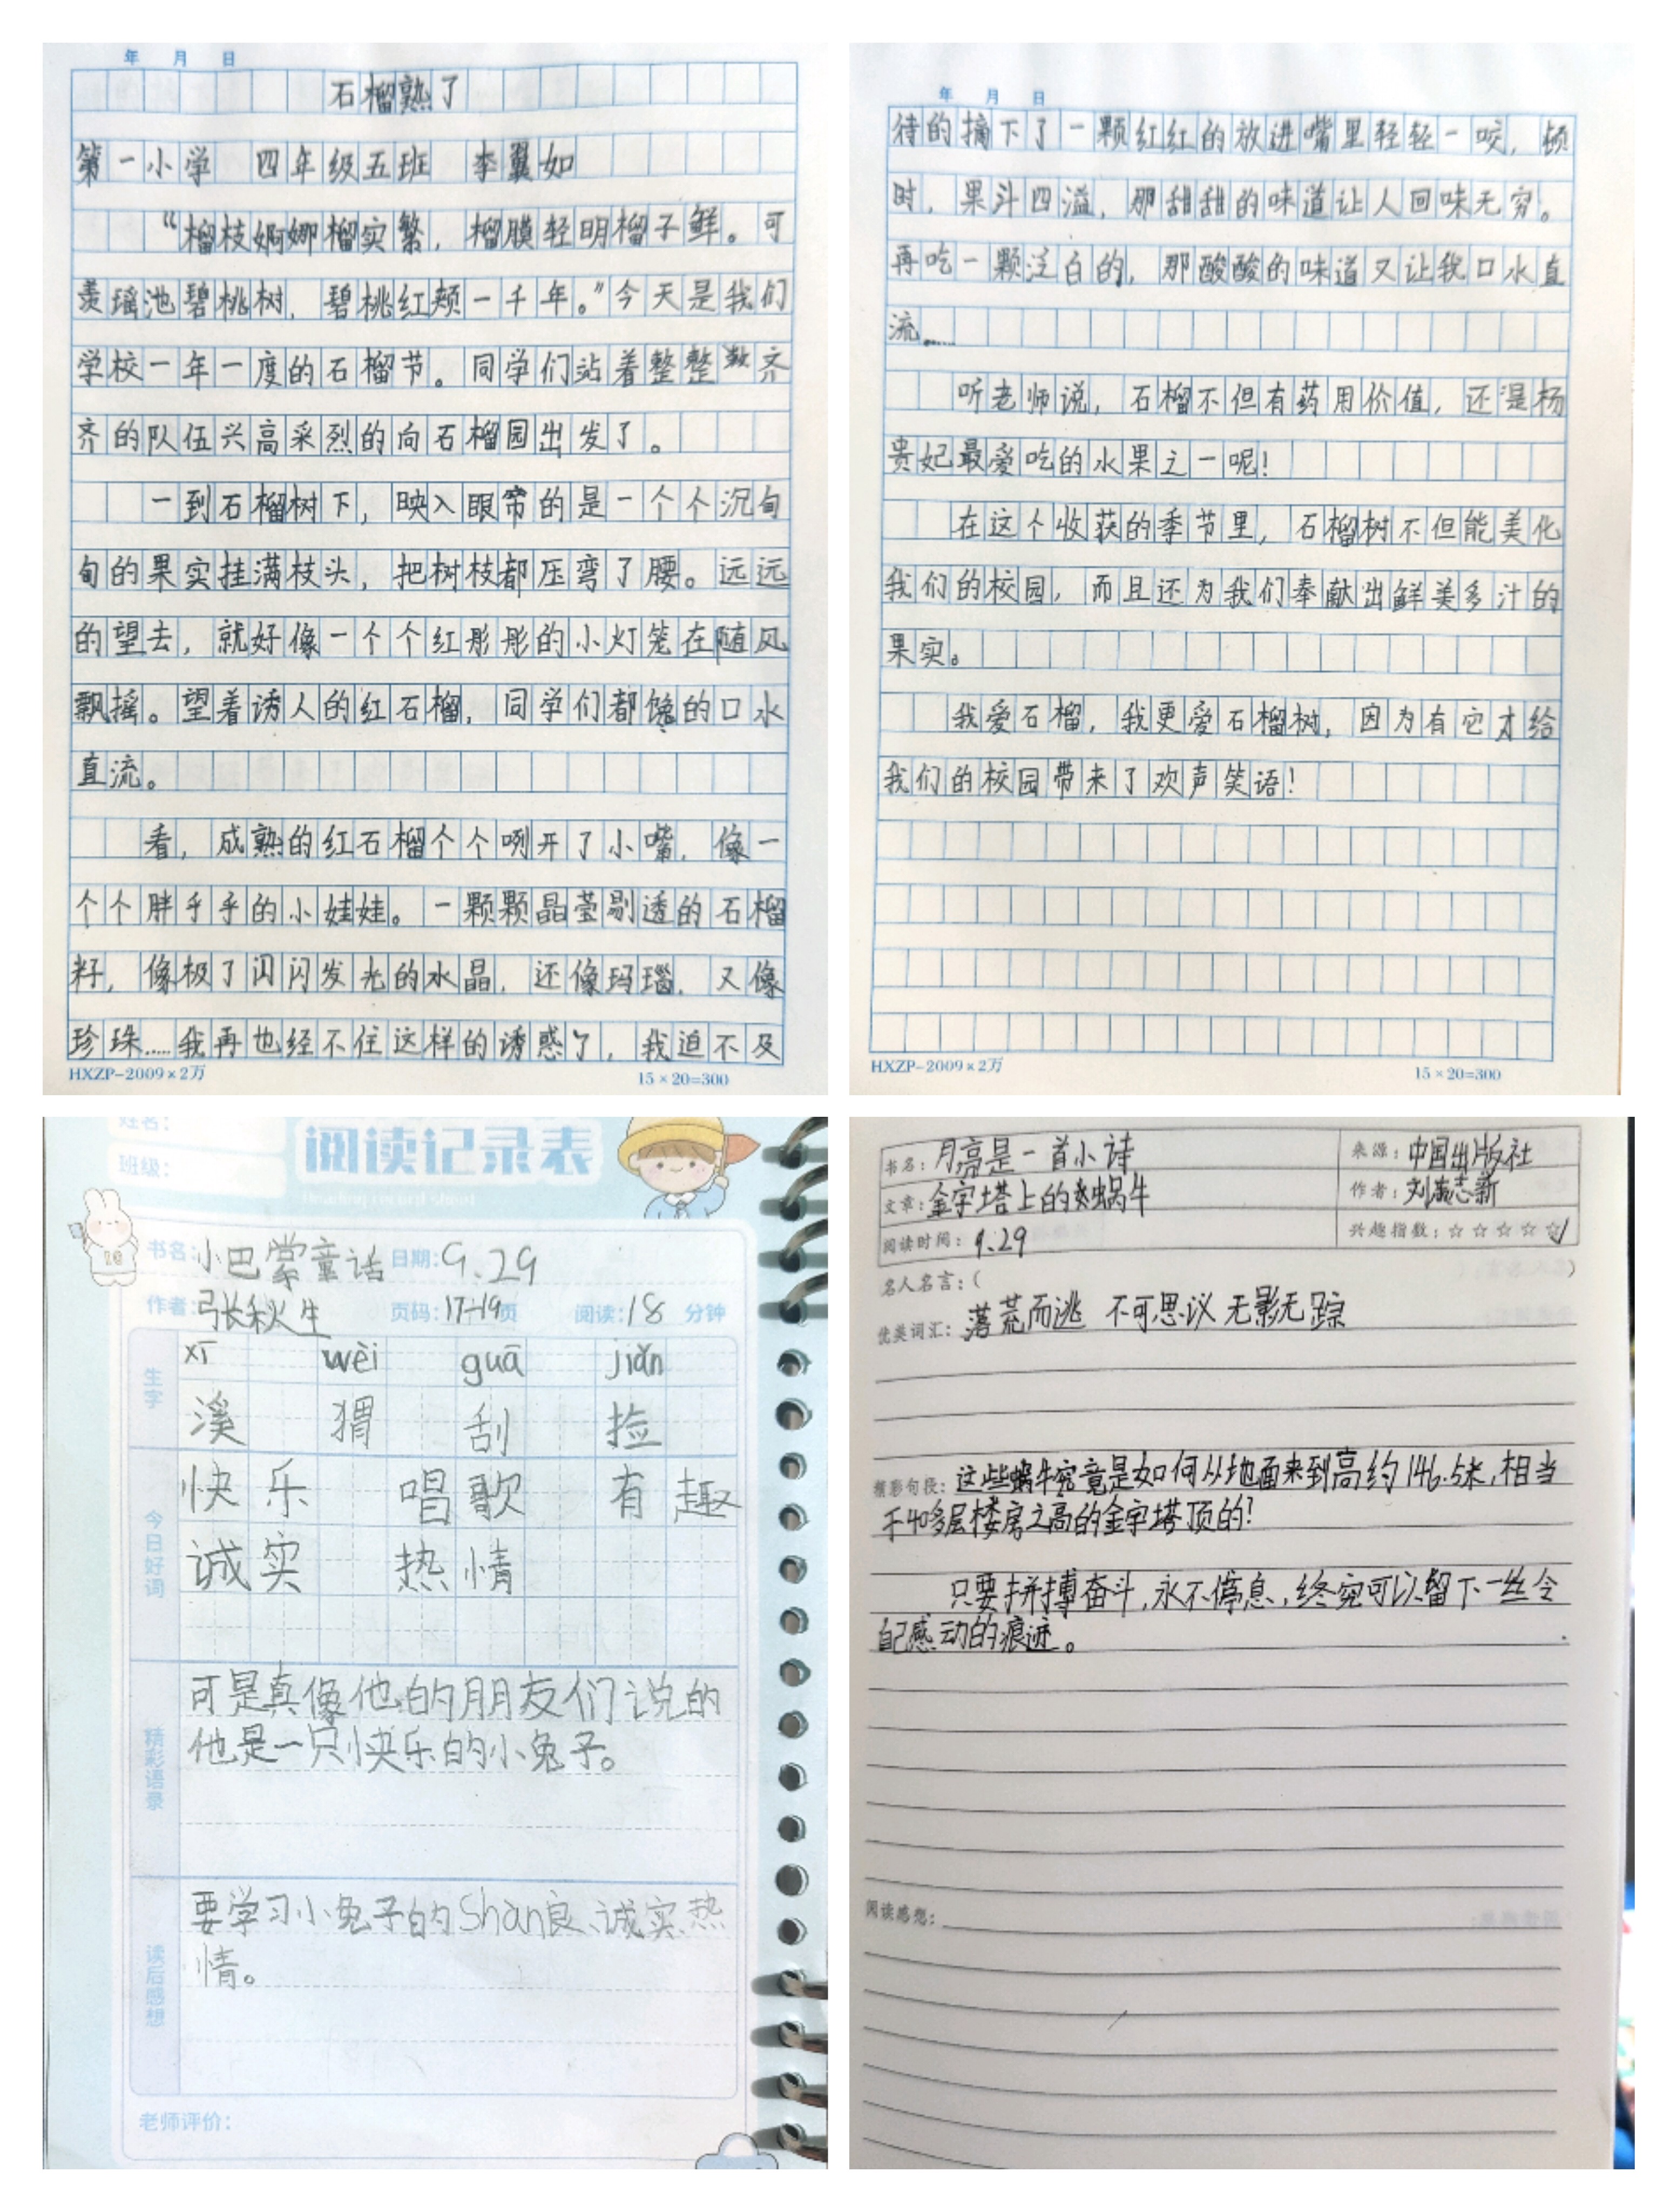 年 月 日
石榴熟了
第一小学 四年级五班 李翼如
“榴枝婀娜榴实繁，榴膜轻明榴子鲜。可
羡瑶池碧桃树，碧桃红颊一千年。”今天是我们
学校一年一度的石榴节。同学们站着整整齐
齐的队伍兴高采烈的向石榴园出发了。
一到石榴树下，映入眼帘的是一个个沉甸
甸的果实挂满枝头，把树枝都压弯了腰。远远
的望去，就好像一个个红彤彤的小灯笼在随风
飘摇。望着诱人的红石榴，同学们都馋的口水
直流。
看，成熟的红石榴个个咧开了小嘴，像一
个个胖乎乎的小娃娃。一颗颗晶莹剔透的石榴
籽，像极了闪闪发光的水晶，还像玛瑙，又像
珍珠……我再也经不住这样的诱惑了，我迫不及
HXZP-2009×2万 15×20=300
年 月 日
待的摘下了一颗红红的放进嘴里轻轻一咬，顿
时，果汁四溢，那甜甜的味道让人回味无穷。
再吃一颗泛白的，那酸酸的味道又让我口水直
流……
听老师说，石榴不但有药用价值，还是杨
贵妃最爱吃的水果之一呢！
在这个收获的季节里，石榴树不但能美化
我们的校园，而且还为我们奉献出鲜美多汁的
果实。
我爱石榴，我更爱石榴树，因为有它才给
我们的校园带来了欢声笑语！
HXZP-2009×2万 15×20=300
姓名：
班级：
阅读记录表
Reading record sheet
书名：小巴掌童话 日期：9.29
作者：张秋生 页码：17-19页 阅读：18 分钟
生字
xī wèi guā jiǎn
溪 猬 刮 捡
今日好词
快乐 唱歌 有趣
诚实 热情
精彩语录
可是真像他的朋友们说的
他是一只快乐的小兔子。
读后感想
要学习小兔子的Shan良、诚实、热
情。
老师评价：
书名：月亮是一首小诗 来源：中国出版社
文章：金字塔上的蜗牛 作者：刘志新
阅读时间：9.29 兴趣指数：☆☆☆☆☆
名人名言：（ ）
优美词汇：落荒而逃 不可思议 无影无踪
精彩句段：这些蜗牛究竟是如何从地面来到高约146.5米，相当
于40多层楼房之高的金字塔顶的！
只要拼搏奋斗，永不停息，终究可以留下一丝令
自己感动的痕迹。
阅读感想：